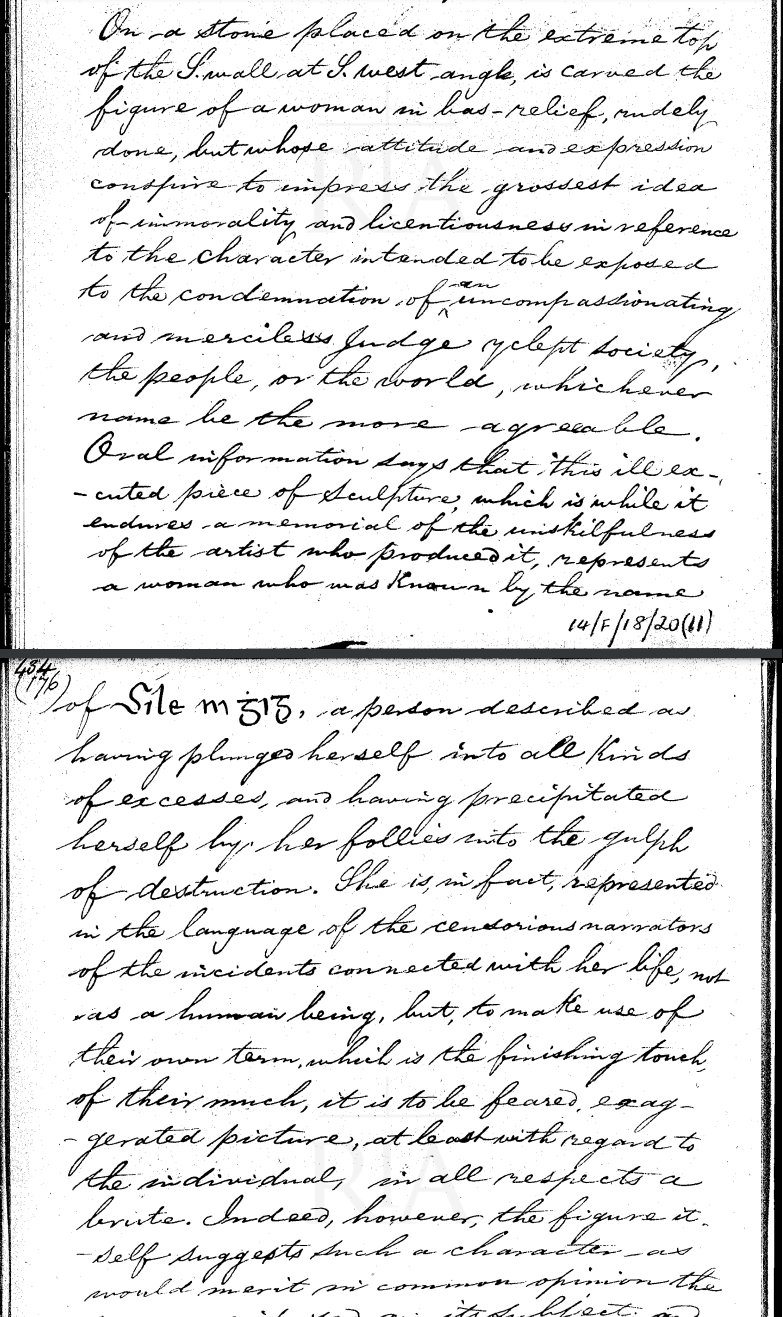 On a stone placed on the extreme top
of the S. wall at S. west angle, is carved the
figure of a woman in bas-relief, rudely
done, but whose attitude and expression
conspire to impress the grossest idea
of immorality and licentiousness in reference
to the character intended to be exposed
to the condemnation of an uncompassionating
and merciless Judge yclept society,
the people, or the world, whichever
name be the more agreeable.
Oral information says that this ill ex-
-cuted piece of Sculpture, which is while it
endures a memorial of the unskilfulness
of the artist who produced it, represents
a woman who was Known by the name
14/F/18/20(11)
434
(176)
of Síle, a person described as
having plunged herself into all Kinds
of excesses, and having precipitated
herself by her follies into the gulph
of destruction. She is, in fact, represented
in the language of the censorious narrators
of the incidents connected with her life, not
as a human being, but, to make use of
their own term, which is the finishing touch,
of their much, it is to be feared, exag-
-gerated picture, at least with regard to
the individual, in all respects a
brute. Indeed, however, the figure it-
-self suggests such a character as
would merit in common opinion the
its subject and
RIA
RIA